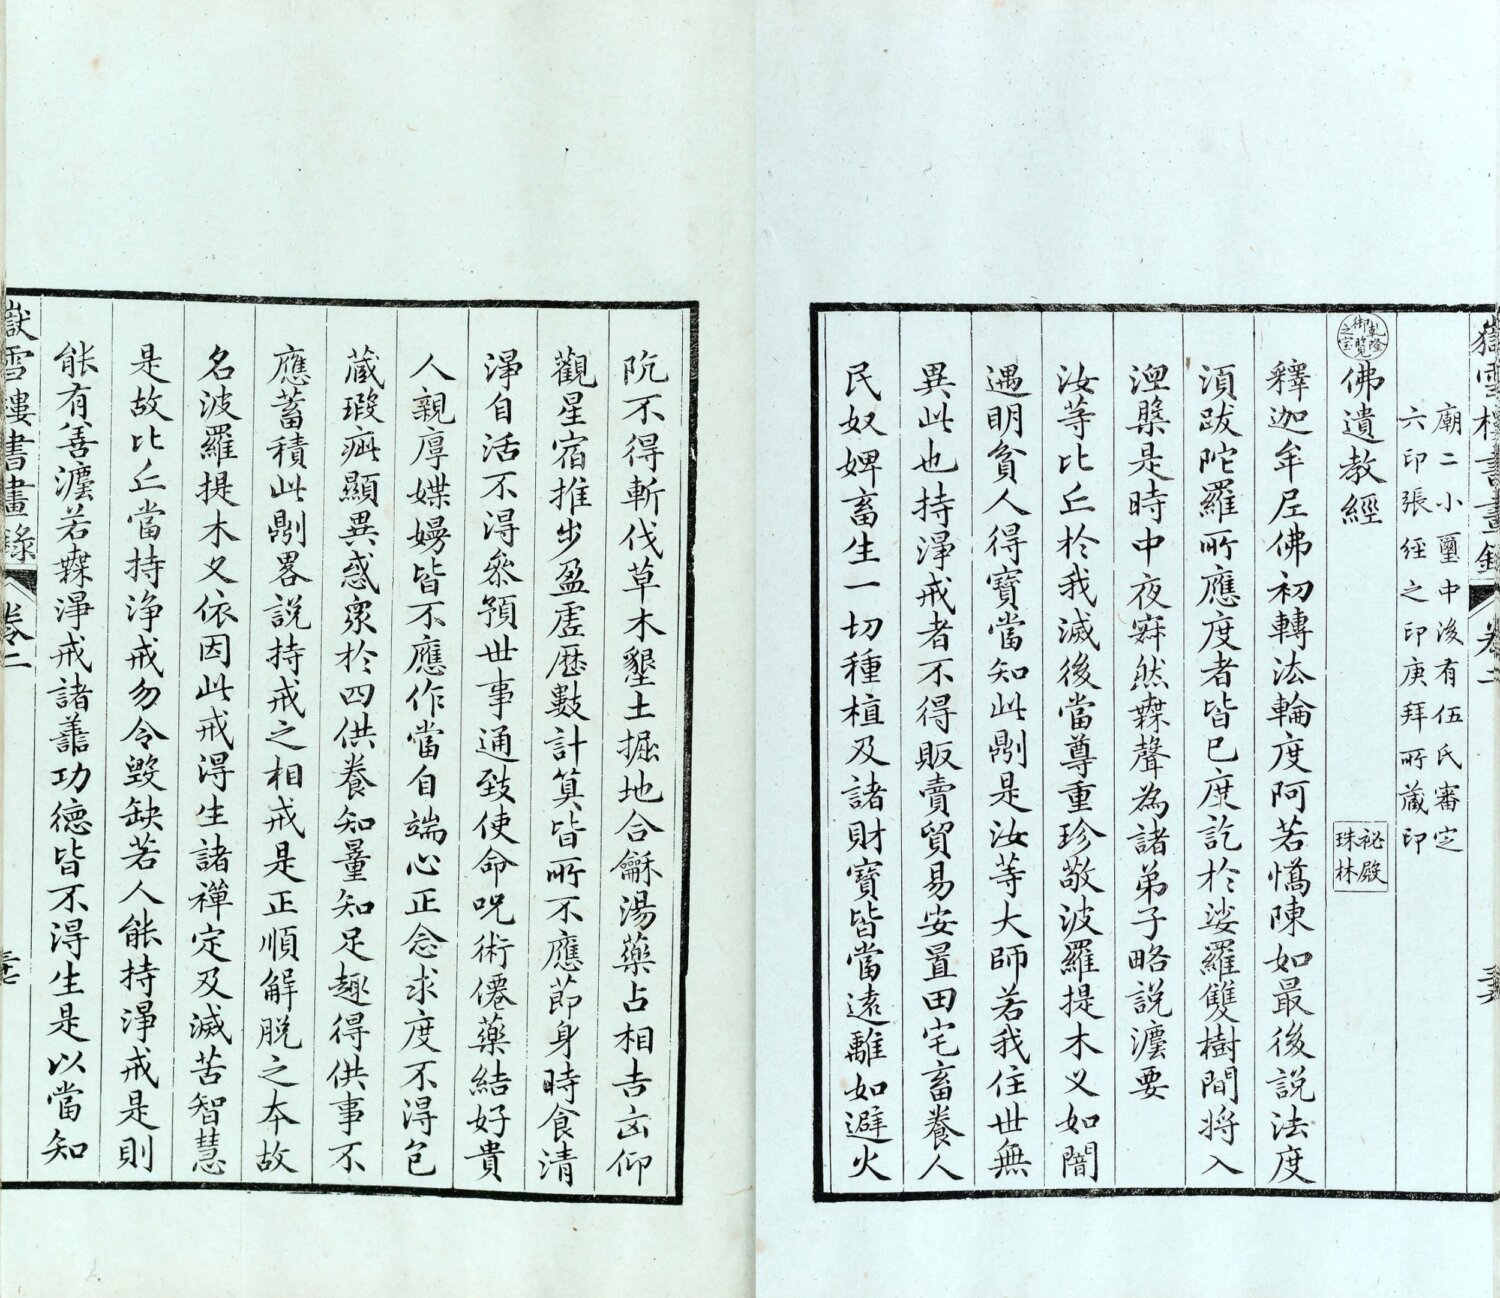 嶽雪樓書畫錄 卷二
廟二小璽中後有伍氏審定
六印張經之印庚拜所藏印
乾隆御覽之宝
佛遺教經
祕殿珠林
釋迦牟尼佛初轉法輪度阿若憍陳如最後說法度
湏跋陀羅所應度者皆已度訖於娑羅雙樹間將入
涅槃是時中夜寂然無聲為諸弟子略說灋要
汝等比丘於我滅後當尊重珍敬波羅提木义如闇
遇明貧人得寶當知此則是汝等大師若我住世無
異此也持淨戒者不得販賣貿易安置田宅畜養人
民奴婢畜生一切種植及諸財寶皆當遠離如避火
阬不得斬伐草木墾土掘地合龢湯藥占相吉凶仰
觀星宿推步盈虛歷數計筭皆所不應節身時食清
淨自活不得參預世事通致使命呪術僊藥結好貴
人親厚媟嫚皆不應作當自端心正念求度不得包
藏瑕疵顯異惑眾於四供養知量知足趣得供事不
應蓄積此則畧說持戒之相戒是正順解脫之本故
名波羅提木义依因此戒得生諸禪定及滅苦智慧
是故比丘當持淨戒勿令毀缺若人能持淨戒是則
能有善灋若無淨戒諸善功德皆不得生是以當知
嶽雪樓書畫錄 卷二